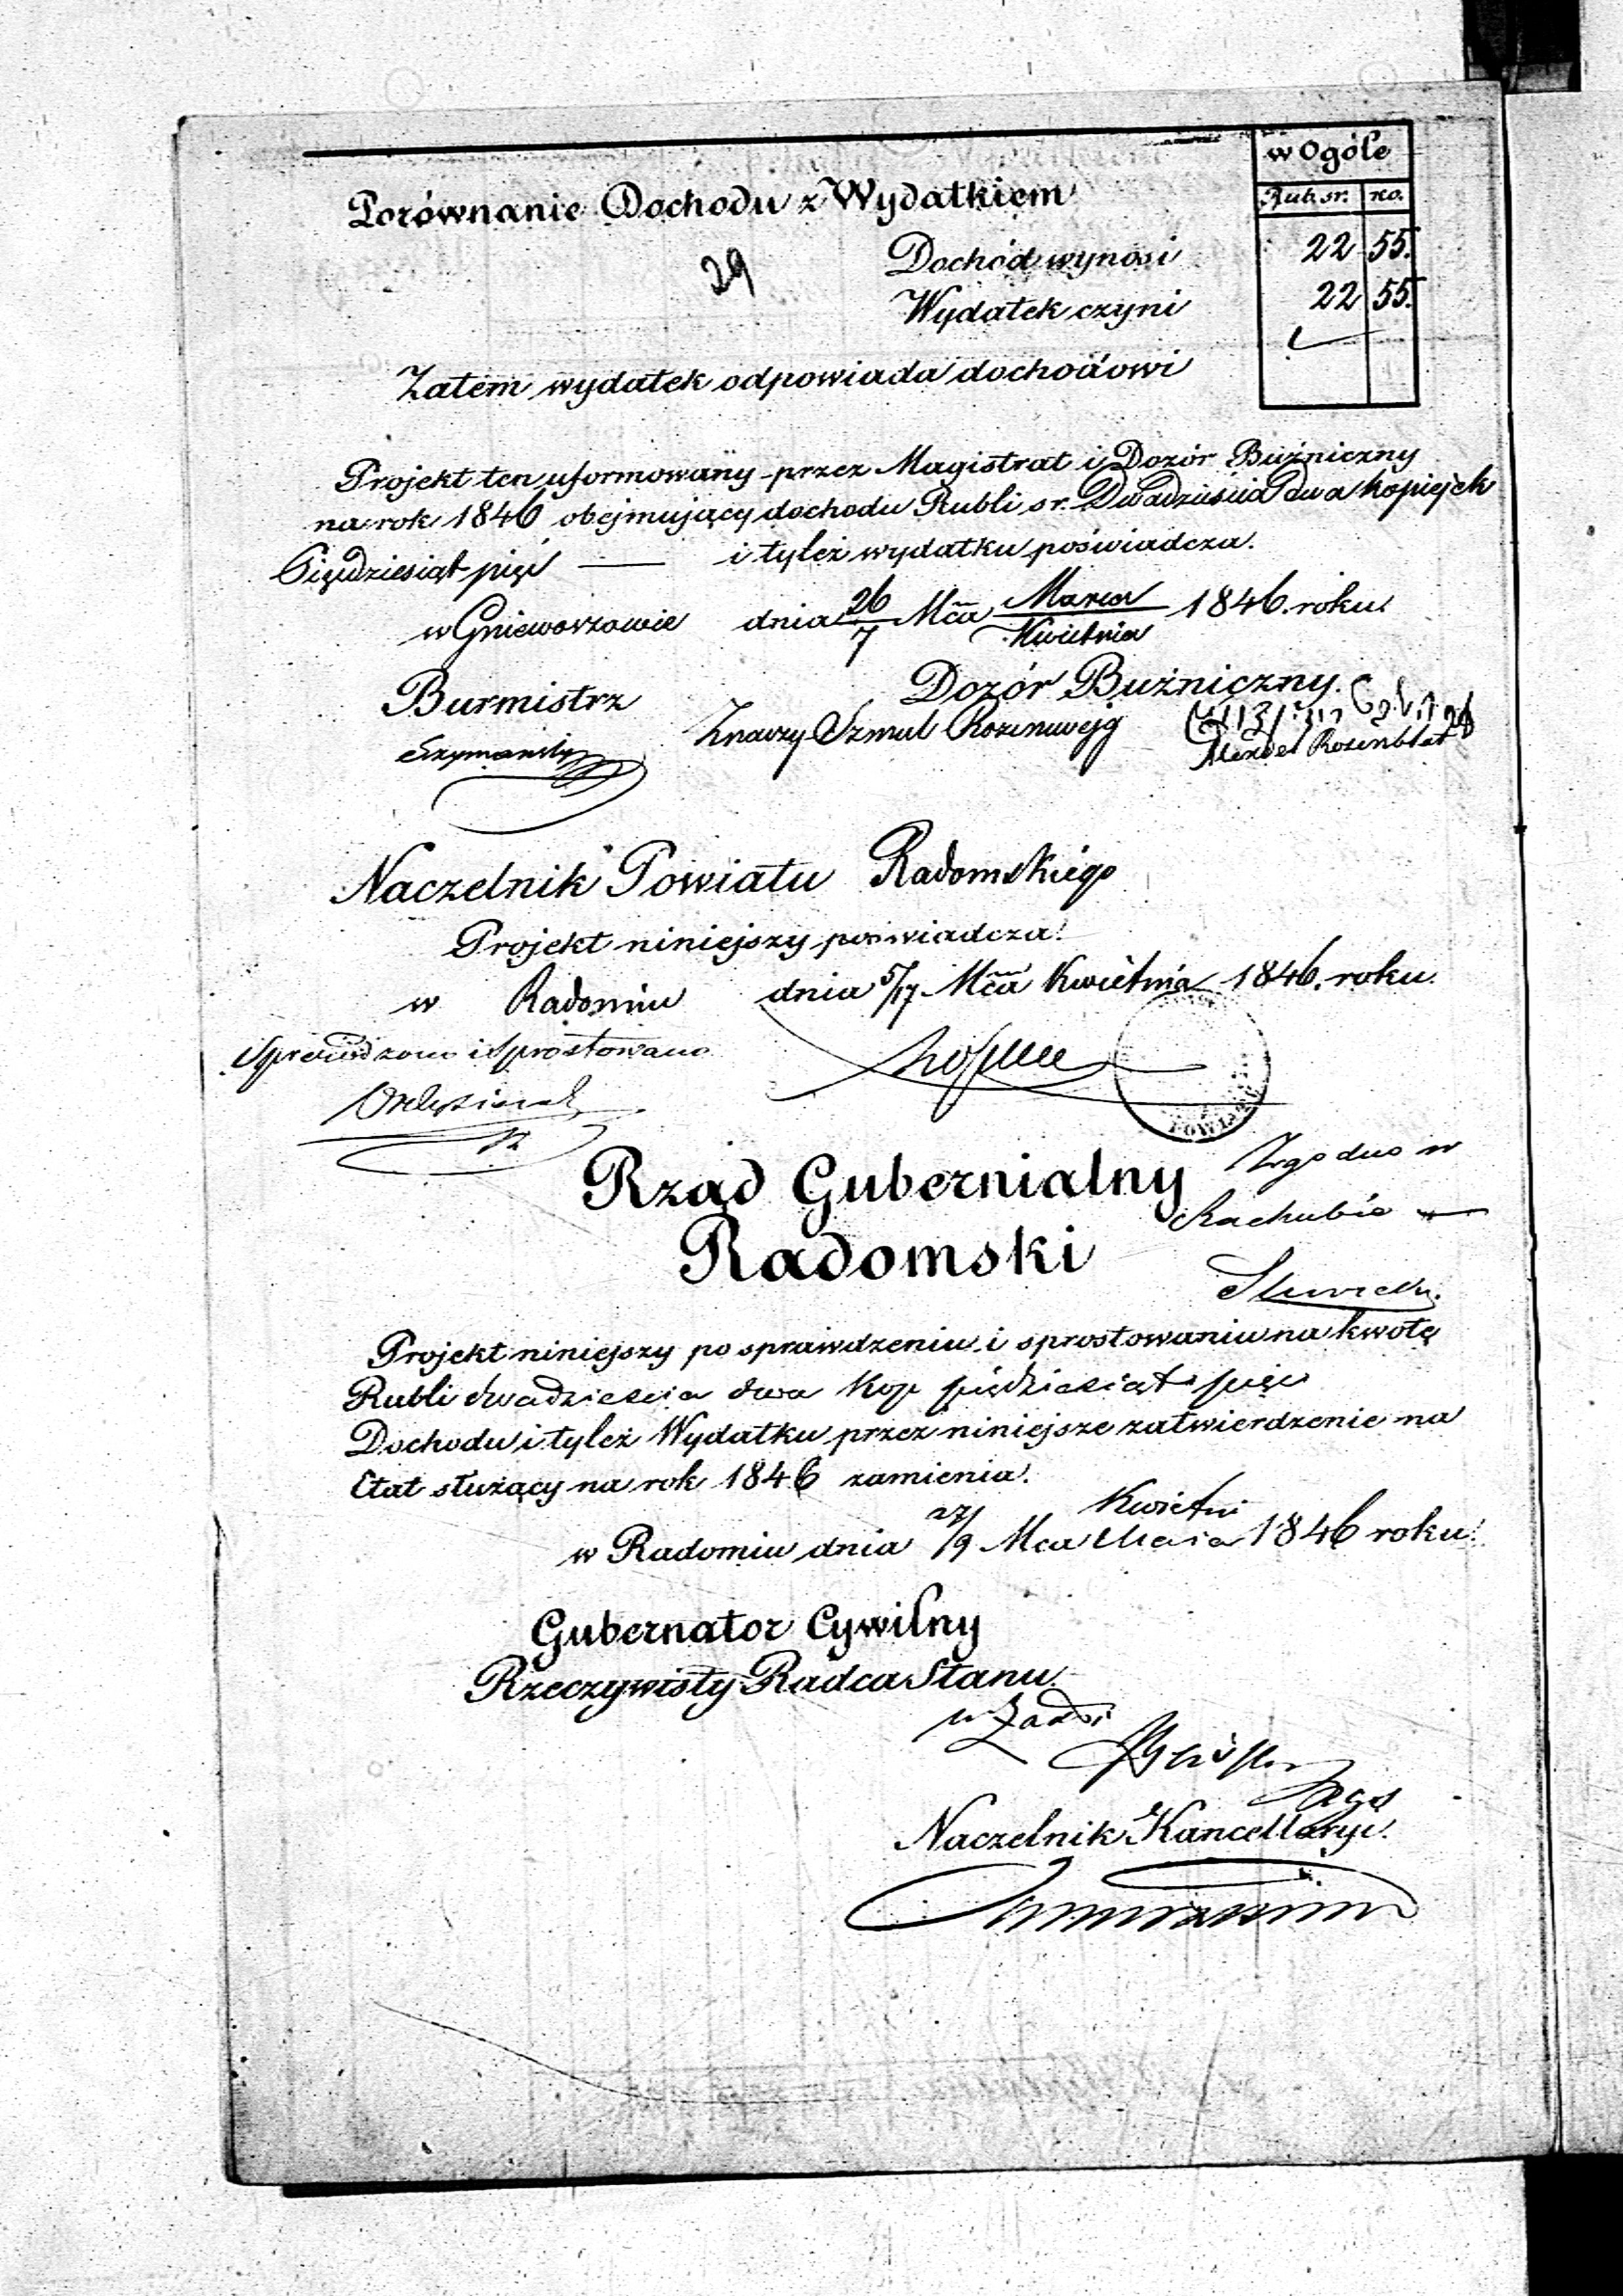 w Ogóle
Rub. sr. ko.
Porównanie Dochodu z Wydatkiem
29
Dochód wynosi 22 55.
Wydatek czyni 22 55.
Zatem wydatek odpowiada dochodowi
Projekt ten uformowany przez Magistrat i Dozór Bużniczny
na rok 1846 obejmujący dochodu Rubli sr. Dwadzieścia dwa kopiejek
Piędziesiąt pięć i tyleż wydatku poświadcza.
w Gniewoszowie dnia 26/7 Mca Marca/Kwietnia 1846 roku.
Burmistrz Dozór Bużniczny.
Szymański Znaczy Szmul Rozenwejg
Rozenblat
Naczelnik Powiatu Radomskiego
Projekt niniejszy poświadcza.
w Radomiu dnia 5/17 Mca Kwietnia 1846. roku.
Sprawdzono i Sprostowano
POWIATU
Zgodno w
Rachubie
Rząd Gubernialny
Radomski
Projekt niniejszy po sprawdzeniu i sprostowaniu na kwotę
Rubli dwadzieścia dwa Kop pięćdziesiąt pięć
Dochodu i tyleż Wydatku przez niniejsze zatwierdzenie na
Etat służący na rok 1846 zamienia.
w Radomiu dnia 27/9 Mca Kwietni/Maia 1846 roku.
Gubernator Cywilny
Rzeczywisty Radca Stanu
Naczelnik Kancellaryi.